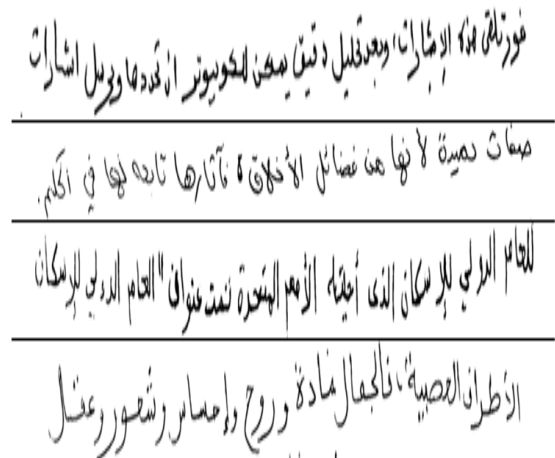 فور تلقي هذه الإشارات، وبعد تحليل دقيق يمكن للكمبيوتر ان تحددها ويرسل اشارات
صفات حميدة لأنها من فضائل الأخلاق فآثارها تابعه لها في الحكم.
للعام الدولي للإسكان الذى أعلنته الأمم المتحدة تحت عنوان "العام الدولي للإسكان
الأطراف العصبية، فالجمال مادة وروح وإحساس وشعور وعقل